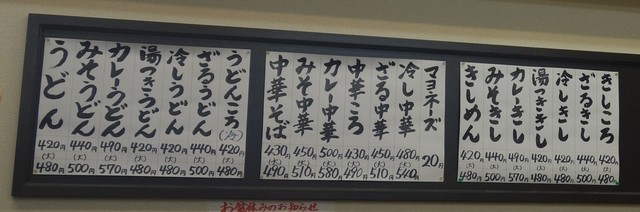 きしころ 420円 (大) 480円
ざるきし 440円 (大) 500円
冷しきし 420円 (大) 480円
湯つききし 420円 (大) 480円
カレーきし 490円 (大) 570円
みそきし 440円 (大) 500円
きしめん 420円 (大) 480円
マヨネーズ 20円
冷し中華 480円 (大) 540円
ざる中華 450円 (大) 510円
中華ころ 430円 (大) 490円
カレー中華 500円 (大) 580円
みそ中華 450円 (大) 510円
中華そば 430円 (大) 490円
うどんころ 420円 (大) 480円
ざるうどん 440円 (大) 500円
冷しうどん 420円 (大) 480円
湯つきうどん 420円 (大) 480円
カレーうどん 490円 (大) 570円
みそうどん 440円 (大) 500円
うどん 420円 (大) 480円
お盆休みのお知らせ